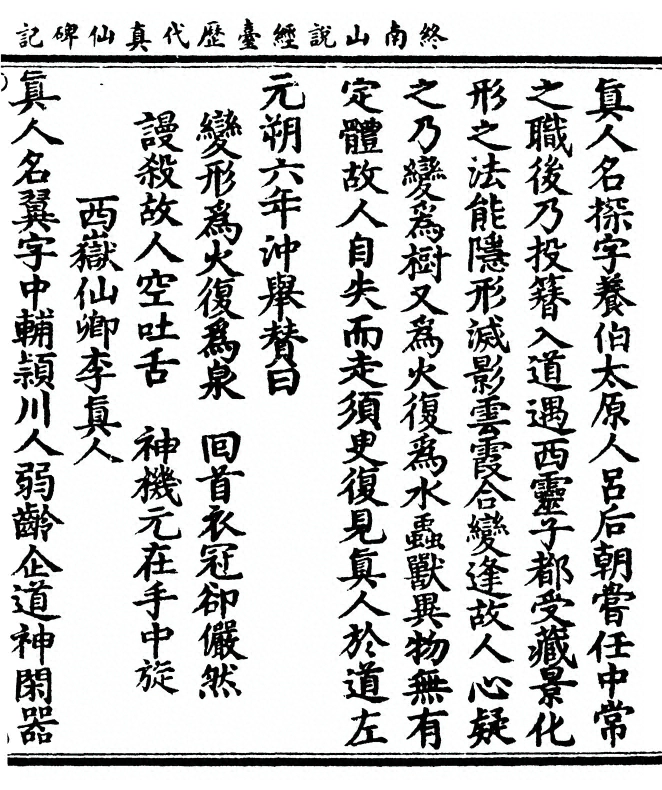 終南山說經臺歷代真仙碑記
真人名探字養伯太原人呂后朝嘗任中常
之職後乃投簪入道遇西靈子都受藏景化
形之法能隱形滅影雲霞合變逢故人心疑
之乃變為樹又為火復為水蟲獸異物無有
定體故人自失而走須臾復見真人於道左
元朔六年沖舉贊曰
變形為火復為泉　回首衣冠卻儼然
謾殺故人空吐舌　神機元在手中旋
西嶽仙卿李真人
真人名翼字中輔潁川人弱齡企道神閑器